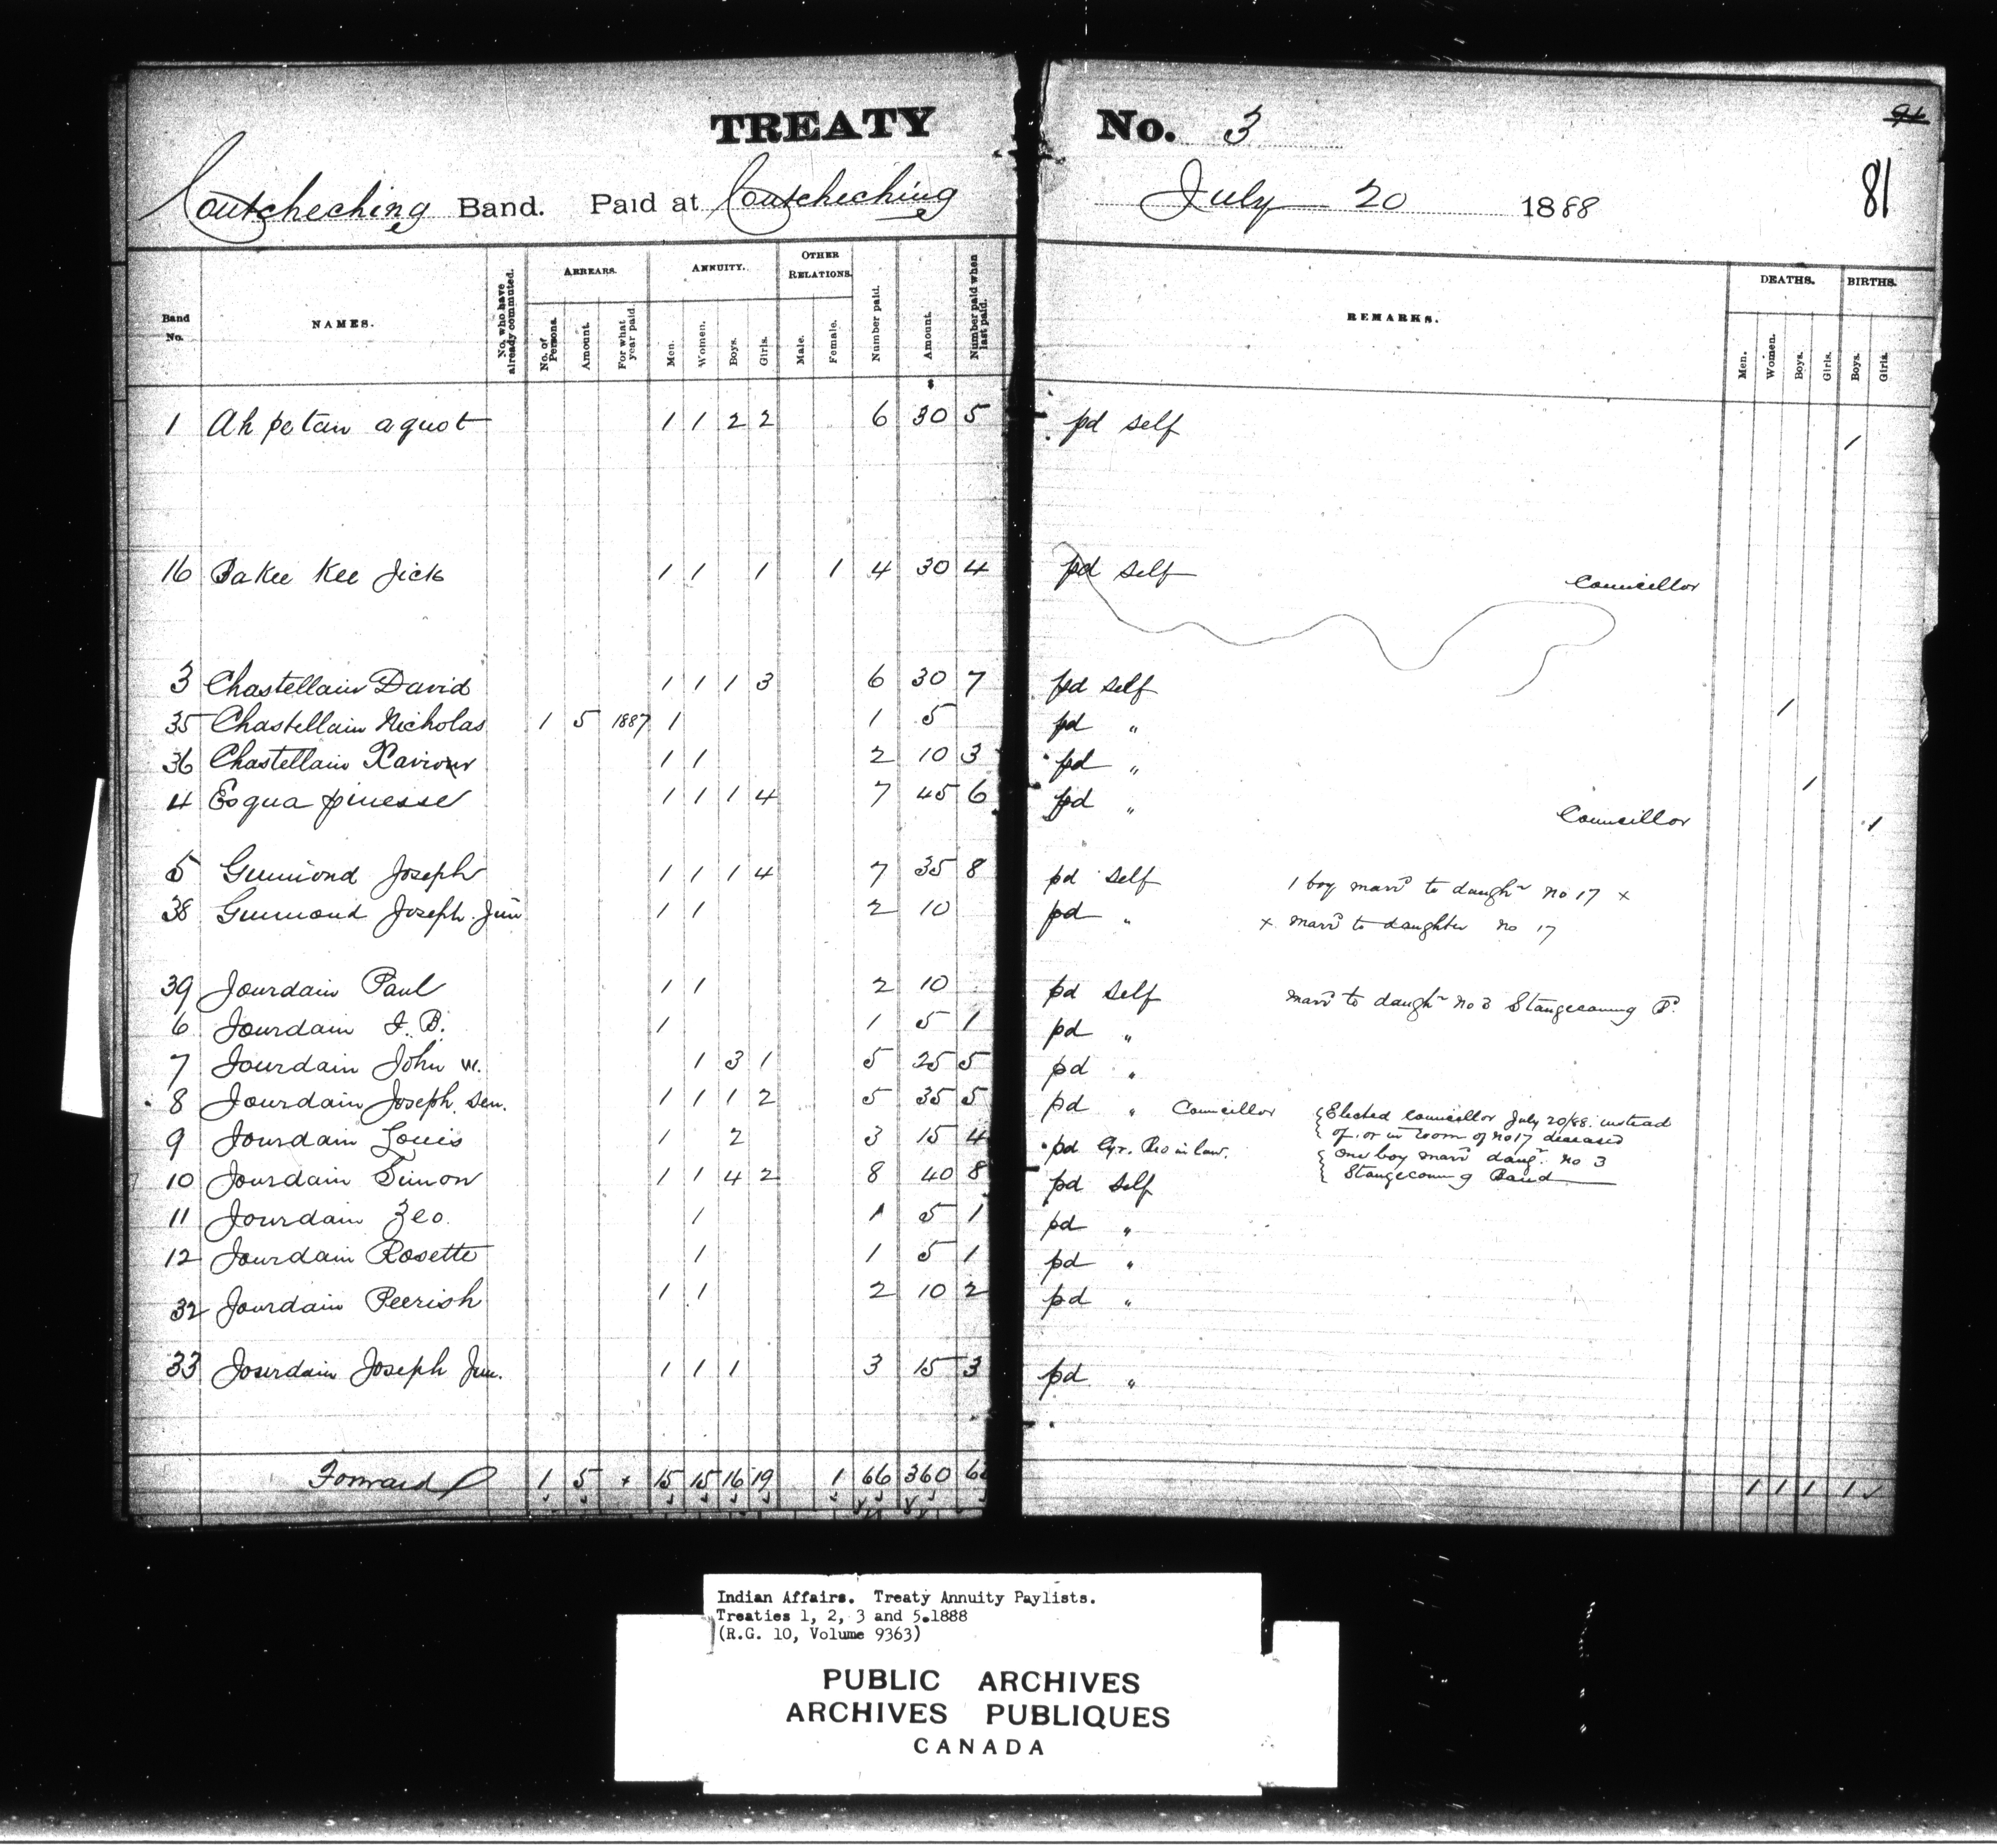 TREATY No. 3
94
81
Coutcheching Band. Paid at Coutcheching July 20 1888
Band No. NAMES. No. who have already commuted. ARREARS. No. of Persons. Amount. For what year paid. ANNUITY. Men. Women. Boys. Girls. OTHER RELATIONS. Male. Female. Number paid. Amount. Number paid when last paid. REMARKS. DEATHS. Men. Women. Boys. Girls. BIRTHS. Boys. Girls.
$
1 Ah pe tan aquot 1 1 2 2 6 30 5 pd self 1
16 Bakee Kee Jick 1 1 1 1 4 30 4 pd self Councillor
3 Chastellain David 1 1 1 3 6 30 7 pd self 1
35 Chastellain Nicholas 1 5 1887 1 1 5 pd "
36 Chastellain Xaviour 1 1 2 10 3 pd " 1
4 Esqua pinesse 1 1 1 4 7 45 6 pd " Councillor 1
5 Guimond Joseph 1 1 1 4 7 35 8 pd self 1 boy marrd to daughr no 17 x
38 Guimond Joseph Jun 1 1 2 10 pd " x marrd to daughter no 17
39 Jourdain Paul 1 1 2 10 pd self marrd to daughr no 3 Stangecoming Bd
6 Jourdain J. B. 1 1 5 1 pd "
7 Jourdain John W. 1 3 1 5 25 5 pd "
8 Jourdain Joseph Sen. 1 1 1 2 5 35 5 pd " Councillor Elected Councillor July 20/88 instead
of or in room of no 17 deceased
9 Jourdain Louis 1 2 3 15 4 pd Bro in law. one boy marrd daugr no 3
Stangecoming Band
10 Jourdain Simon 1 1 4 2 8 40 8 pd self
11 Jourdain Zeo. 1 1 5 1 pd "
12 Jourdain Rosette 1 1 5 1 pd "
32 Jourdain Peerish 1 1 2 10 2 pd "
33 Jourdain Joseph Jun. 1 1 1 3 15 3 pd "
Forward 1 5 x 15 15 16 19 1 66 360 1 1 1 1
Indian Affairs. Treaty Annuity Paylists.
Treaties 1, 2, 3 and 5.1888
(R.G. 10, Volume 9363)
PUBLIC ARCHIVES
ARCHIVES PUBLIQUES
CANADA